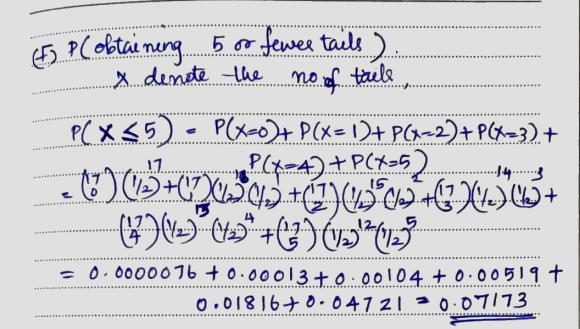 (f) P(obtaining 5 or fewer tails).
X denote the no of tails,
P(X≤5) = P(X=0)+ P(X=1)+ P(X=2)+ P(X=3) +
P(X=4) + P(X=5)
= (17 0) (1/2)^17 + (17 1)(1/2)^16 (1/2) + (17 2)(1/2)^15 (1/2)^2 + (17 3)(1/2)^14 (1/2)^3 +
(17 4)(1/2)^13 (1/2)^4 + (17 5)(1/2)^12 (1/2)^5
= 0.0000076 + 0.00013 + 0.00104 + 0.00519 +
0.01816 + 0.04721 = 0.07173